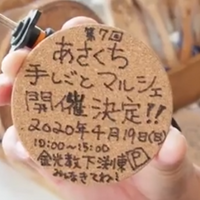 第7回
あさくち
手しごとマルシェ
開催決定!!
2020年4月19日(日)
10:00~15:00
金光教下渕東Ⓟ
みなきてね!